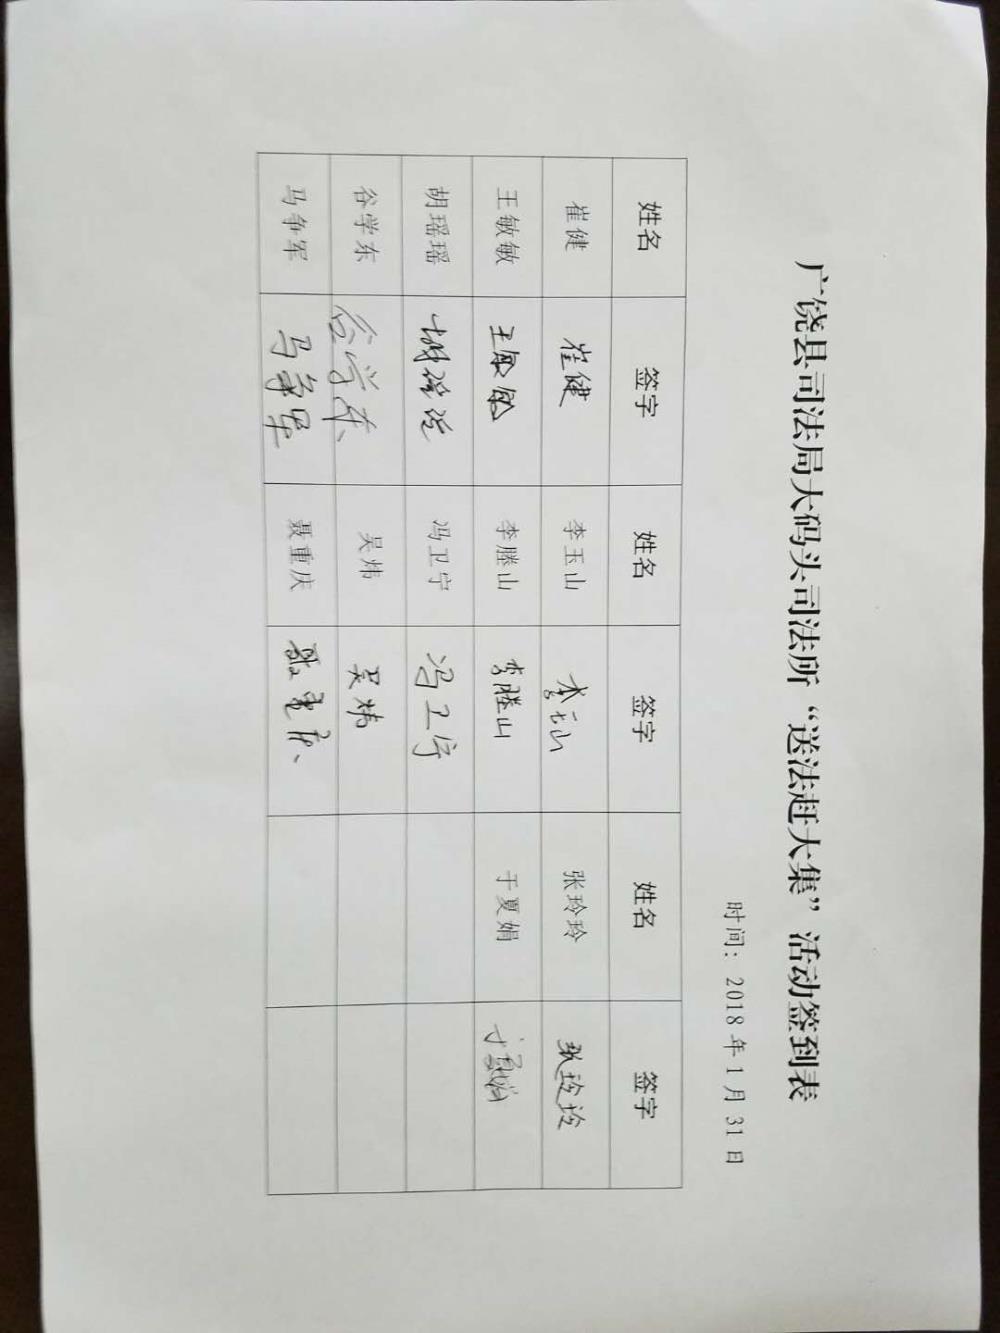 广饶县司法局大码头司法所“送法赶大集”活动签到表
时间：2018年1月31日
姓名 签字 姓名 签字 姓名 签字
崔健 崔健 李玉山 李玉山 张玲玲 张玲玲
王敏敏 王敏敏 李塍山 李塍山 于夏娟 于夏娟
胡瑶瑶 胡瑶瑶 冯卫宁 冯卫宁
谷学东 谷学东 吴炜 吴炜
马争军 马争军 聂重庆 聂重庆